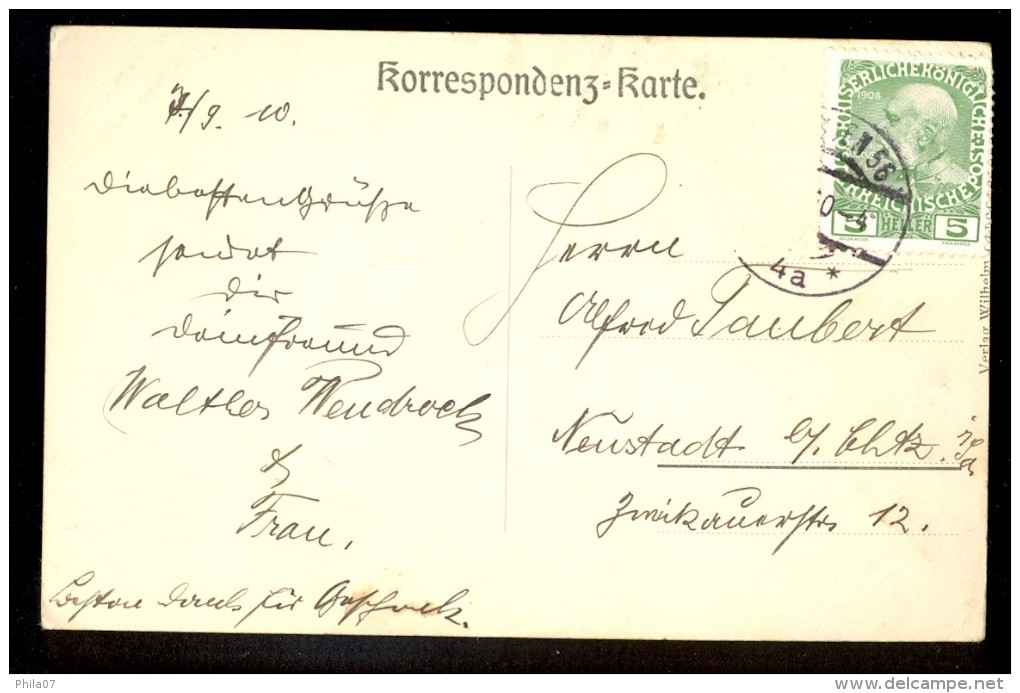 Korrespondenz-Karte.
7/9. 10.
Die besten Grüße
sendet
dir
dein Freund
Walther Wendrock
&
Frau.
Besten Dank für Geschenk.
Herrn
Alfred Taubert
Neustadt b/. Chtz.
Zwickauerstr. 12.
KAISERLICHE KÖNIGLICHE
REICHISCHE
1908
5 HELLER 5
1 56
0-4
4a *
Verlag Wilhelm
Phila07
delcampe.net